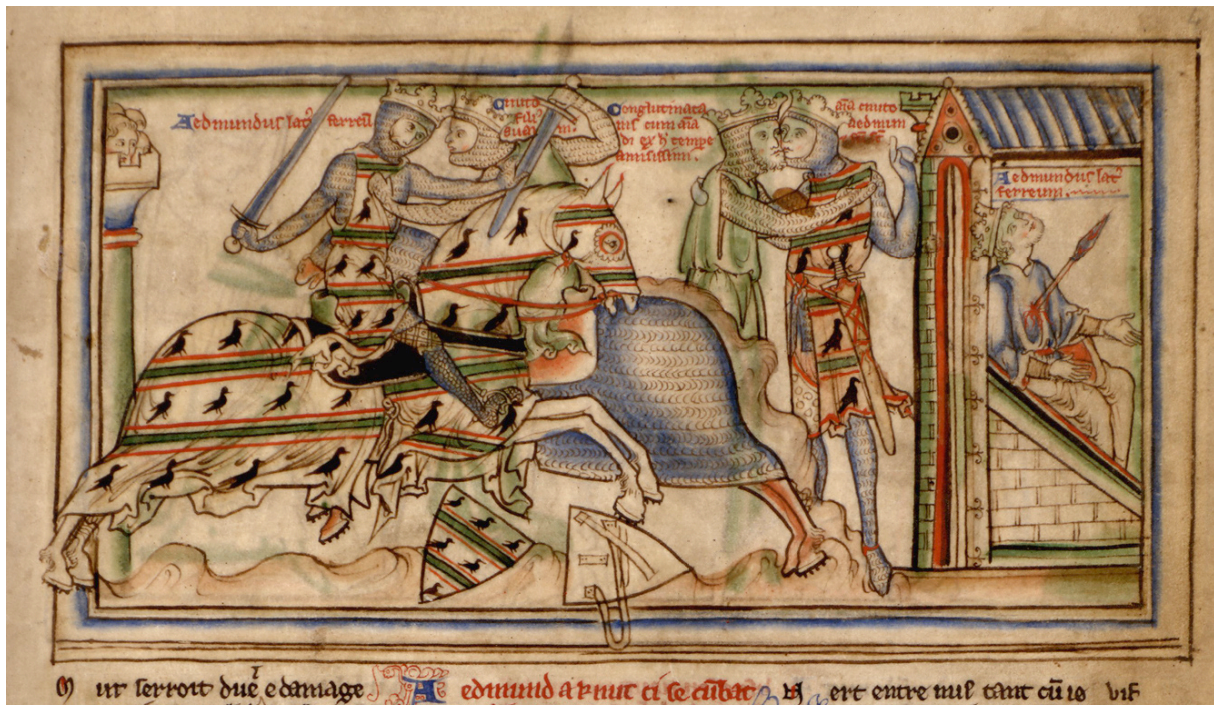 Aedmundus lat' ferreū
Cnuto
fili'
Conglutinata
nis cum aīa
di ex h' tempe
amisissim.
aīa cnuto
aedmun
Aedmundus lat'
ferreum.
ur serroit due e damage
Aedmund a knut ci se cūbat
ert entre nus tant cū io vif